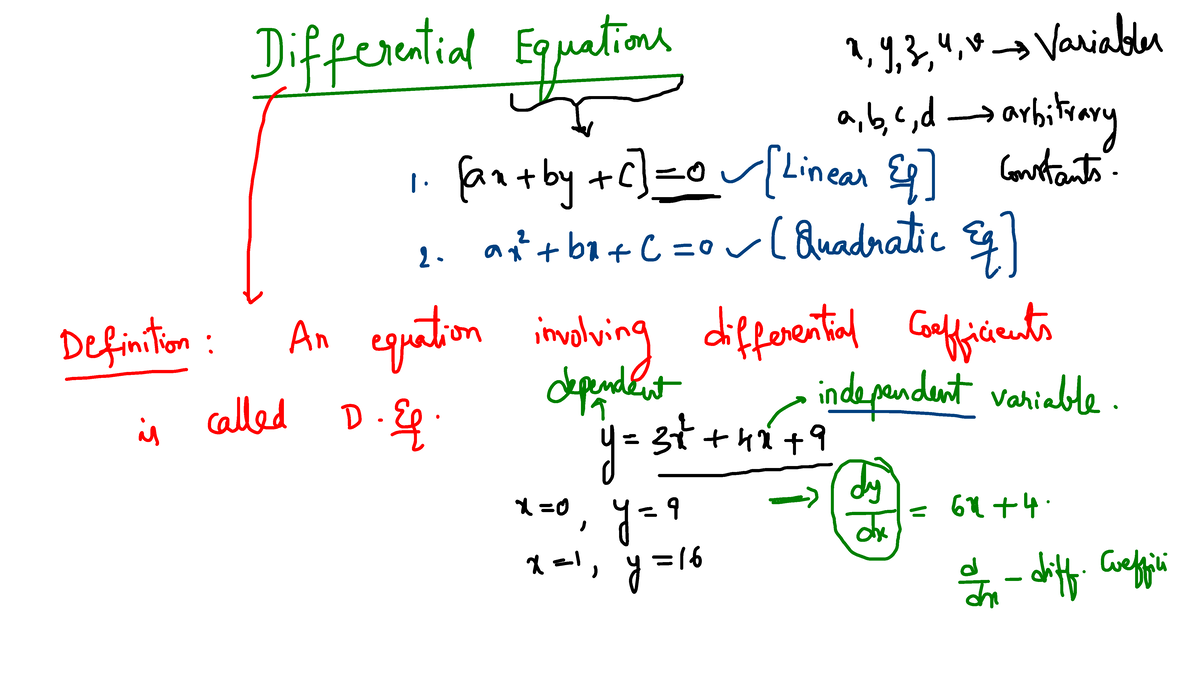 Differential Equations
x, y, z, u, v → Variables
a, b, c, d → arbitrary
Constants.
1. [ax + by + C] = 0 ✓ [Linear Eq]
2. ax² + bx + C = 0 ✓ [Quadratic Eq.]
Definition : An equation involving differential Coefficients
is called D. Eq.
dependent
independent variable.
y = 3x² + 4x + 9
x = 0, y = 9
x = 1, y = 16
→ dy/dx = 6x + 4.
d/dx - diff. Coeffici